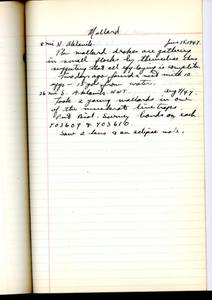 Mallard
6 mi N. Aklavik. June 15, 1947.
The mallard drakes are gathering
in small flocks by themselves thus
suggesting that all egg laying is complete.
Two days ago found a nest with 10
eggs – 15 yds from water.
26 mi S. Aklavik N.W.T. Aug 9/47.
Took 2 young mallards in one
of the muskrat live traps.
Put Biol. Survey bands on each
703609 & 703610.
Saw 2 hens & an eclipse male.